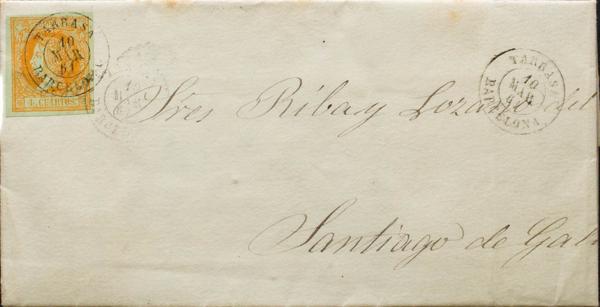 TARRASA
10
MAR
61
BARCELONA
4 CUARTOS
TARRASA
10
MAR
61
BARCELONA
Sres Riba y Lozano del
Santiago de Gali